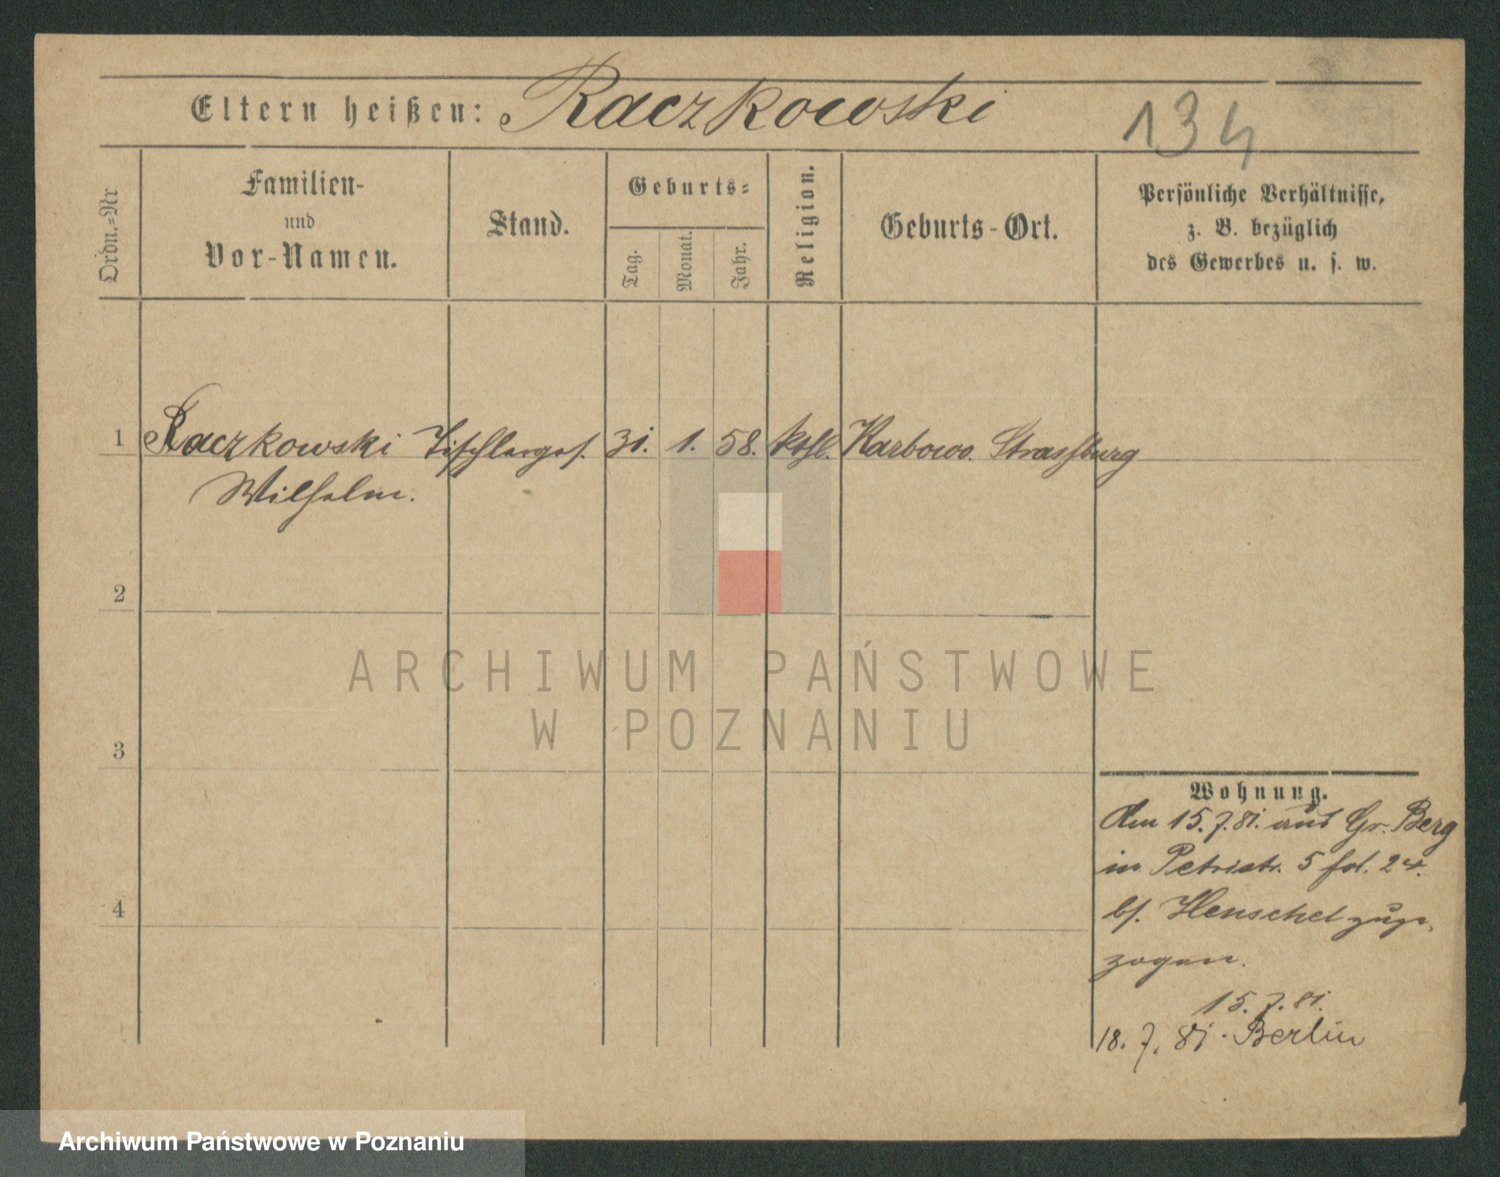 Eltern heißen: Raczkowski
134
Ordn.-Nr
Familien-
und
Vor-Namen.
Stand.
Geburts-
Tag.
Monat.
Jahr.
Religion.
Geburts-Ort.
Persönliche Verhältnisse,
z. B. bezüglich
des Gewerbes u. s. w.
1 Raczkowski Tischlerges. 31. 1. 58. kath. Karbowo. Strassburg
Wilhelm.
2
3
4
ARCHIWUM PAŃSTWOWE
W POZNANIU
Wohnung.
Den 15.7.81. aus Gr. Berg
in Petristr. 5 fol. 24.
bei Henschel
zogen.
15.7.81.
18.7.81. Berlin
Archiwum Państwowe w Poznaniu